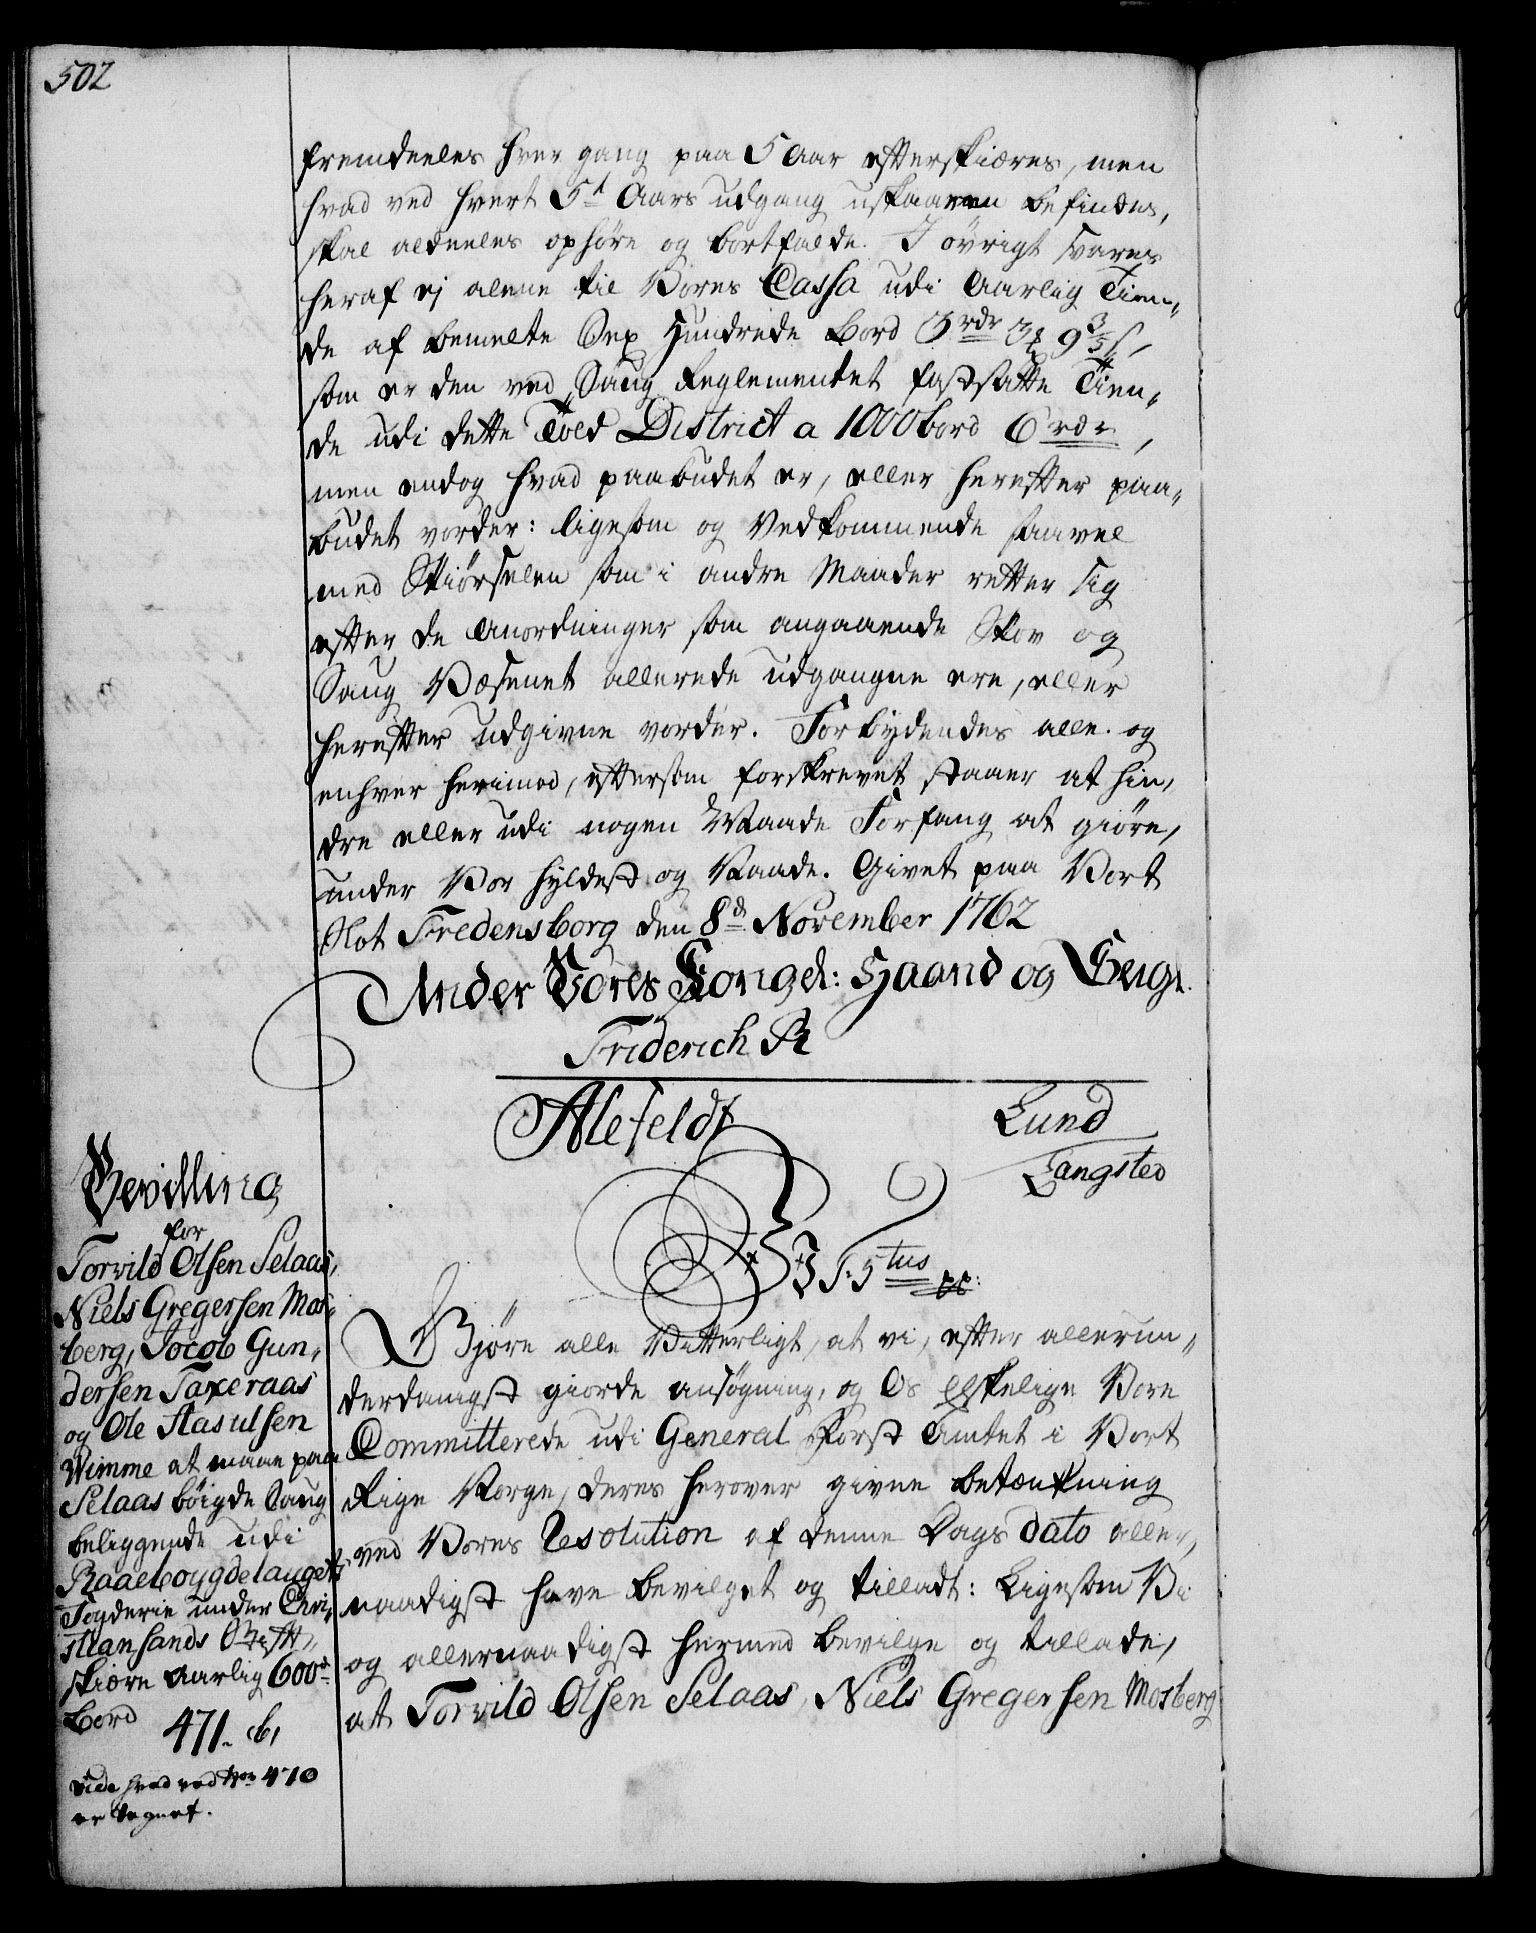 502
fremdeeles hver gang paa 5 Aar efterskiæres, men
hvad ved hvert 5t Aars udgang uskaaren befindes,
skal aldeeles ophøre og bortfalde. I øvrigt svares
heraf ej alene til Vores Cassa udi Aarlig Tien-
de af bemelte Sex Hundrede Bord 3 rdr 3 9 3/5 s,
som er den ved Saug Reglementet fastsatte Tien-
de udi dette Toed District a 1000 bord 6 rdr,
men endog hvad paabudet er, eller herefter paa-
budet vorder: ligesom og Vedkommende saavel
med Skiørselen som i andre Maader retter sig
efter de Anordninger som angaaende Skov og
Saug Væsenet allerede udgangne ere, eller
herefter udgivne vorder. Forbydendes alle og
enhver herimod, eftersom forskrevet staaer at hin-
dre eller udi nogen Maade Forfang at giøre,
under Vor Hyldest og Naade. Givet paa Vort
Slot Fredensborg den 8d November 1762
Under Vores Kongel: Haand og Seigl.
Friderich R
Alefeldt Lund
Langsted
Bevilling
for
Torvild Olsen Selaas,
Niels Gregersen Mos-
berg, Jocob Gun-
dersen Taxeraas
og Ole Aasulsen
Wimme at maae paa
Selaas bøigde Saug
beliggende udi
Raaeboygdelaugets
Fogderie under Chri-
stiansands Stift,
skiære Aarlig 600d
Bord
471. b,
vide hvad ved No 470
er tegnet.
F: 5tus pp:
Gjøre alle Vitterligt, at vi, efter allerun-
derdanigst giorde ansøgning, og Os elskelige Vore
Committerede udi General Forst Amtet i Vort
Rige Norge, deres herover givne betænkning
ved Vores Resolution af denne Dags dato aller-
naadigst have bevilget og tilladt: Ligesom Vi
og allernaadigst hermed bevilge og tillade,
at Torvild Olsen Selaas, Niels Gregersen Mosberg